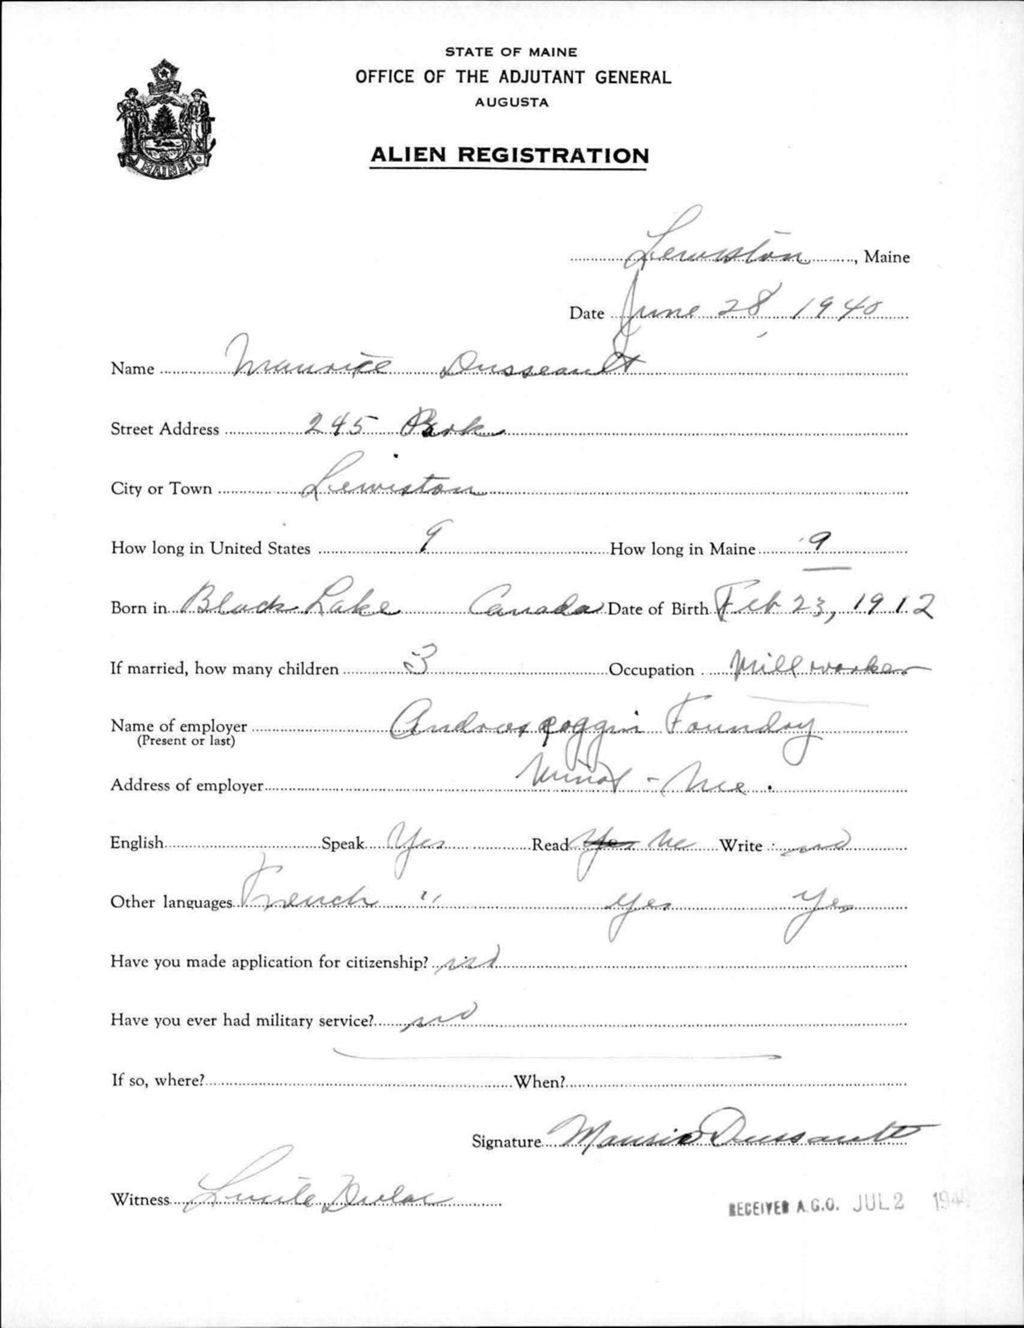 STATE OF MAINE
OFFICE OF THE ADJUTANT GENERAL
AUGUSTA
ALIEN REGISTRATION
MAINE
Lewiston, Maine
Date June 28, 1940
Name Maurice Dusseault
Street Address 245 Park
City or Town Lewiston
How long in United States 9 How long in Maine 9
Born in Black Lake Canada Date of Birth Feb 23, 1912
If married, how many children 3 Occupation Mill worker
Name of employer Androscoggin Foundry
(Present or last)
Address of employer Minot - Me.
English Speak Yes Read Yes No Write no
Other languages French " Yes Yes
Have you made application for citizenship? no
Have you ever had military service? no
If so, where? When?
Signature Maurice Dussault
Witness Lucile Dulac
RECEIVED A.G.O. JUL 2 194